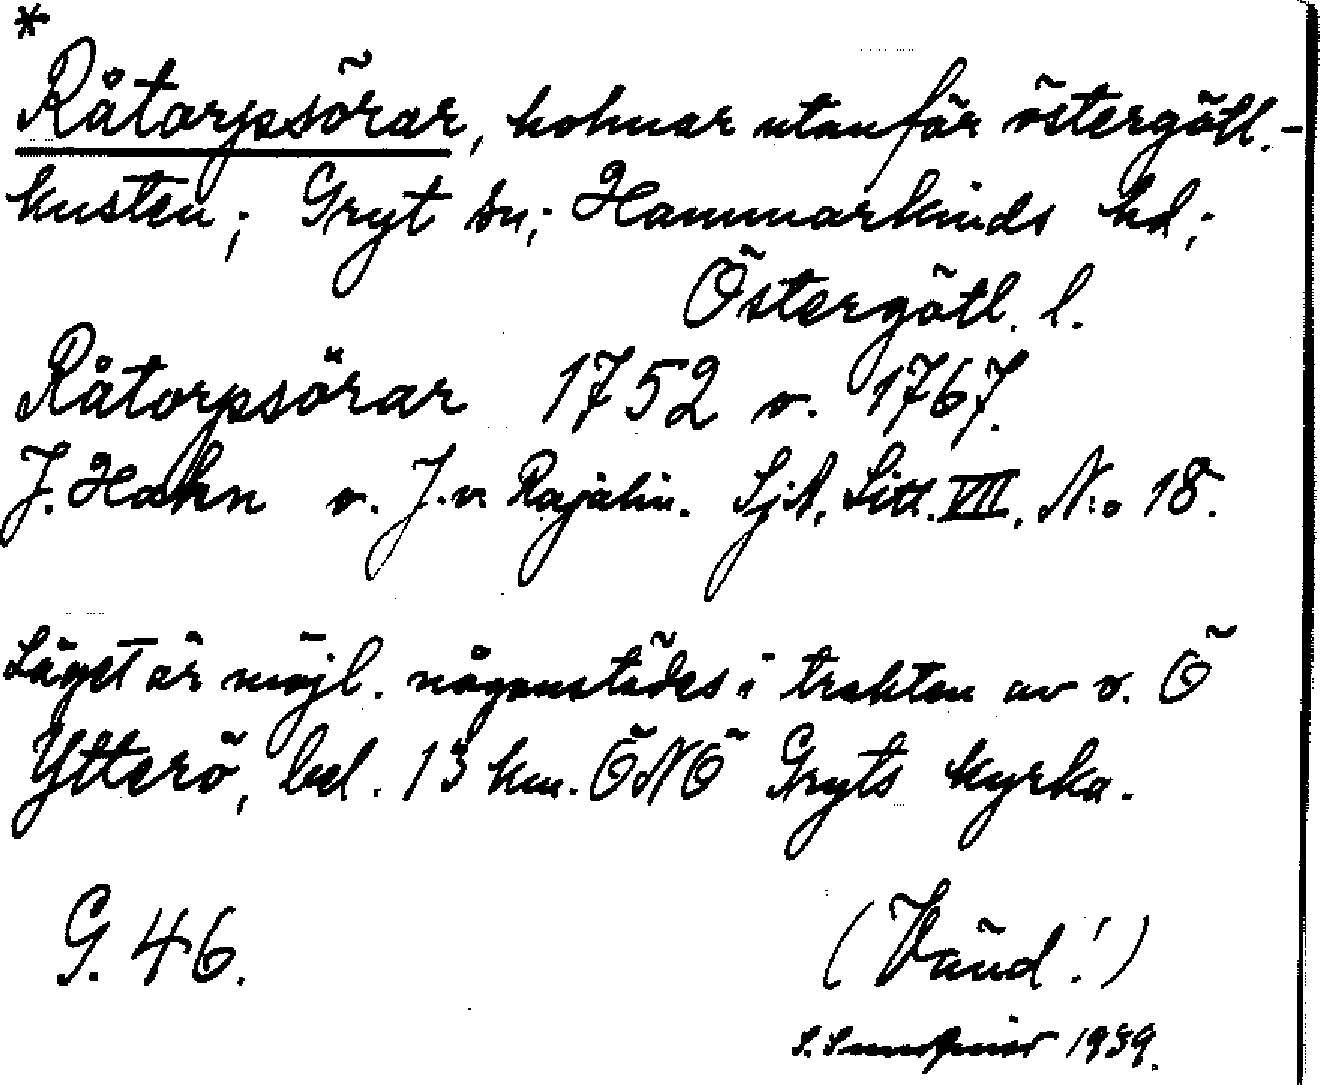 *
Råtorpsörar, holmar utanför östergötl.-
kusten; Gryt sn; Hammarkinds hd;
Östergötl. l.
Råtorpsörar 1752 o. 1767.
J. Hahn o. J. v. Rajalin. SjA, Litt. VII, N:o 18.
Läget är möjl. någonstädes i trakten av o. Ö
Ytterö, bel. 13 km. ÖNÖ Gryts kyrka.
G. 46.
(Vänd!)
S. 1939.